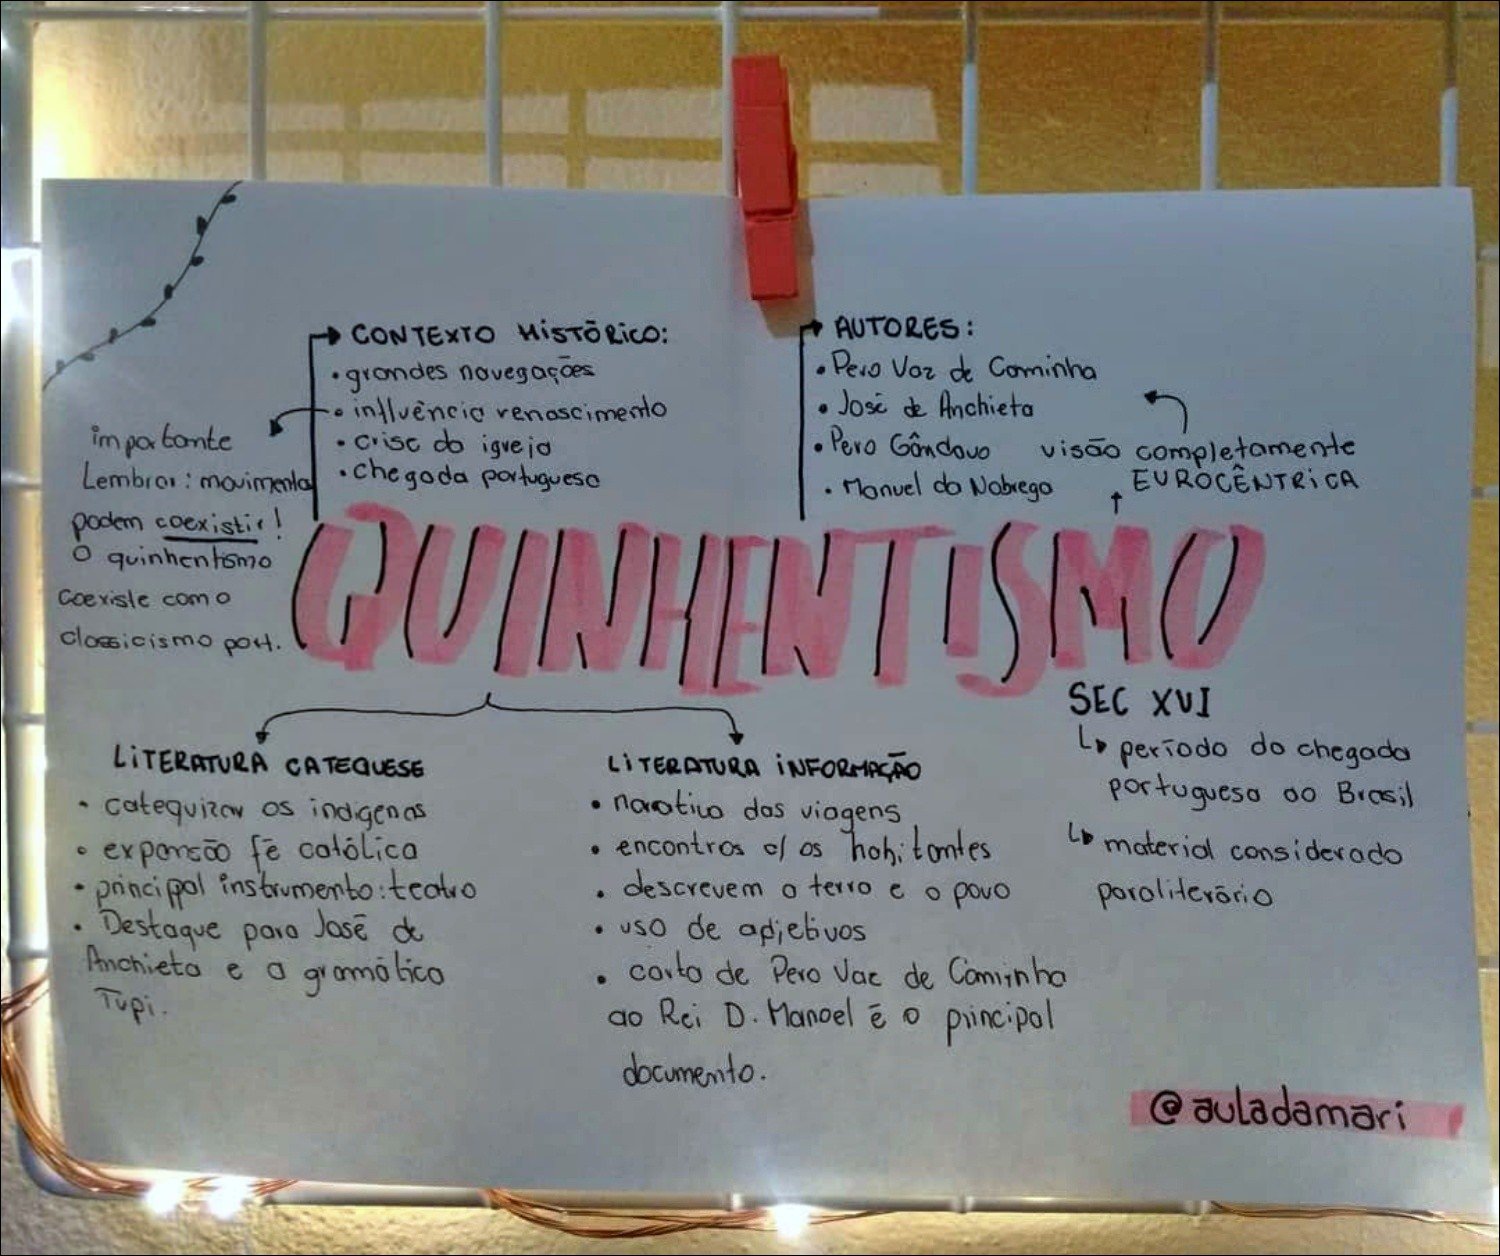 CONTEXTO HISTÓRICO:
• grandes navegações
• influência renascimento
• crise da igreja
• chegada portuguesa
importante
Lembrar: movimentos
podem coexistir!
O quinhentismo
coexiste com o
classicismo port.
AUTORES:
• Pero Vaz de Caminha
• José de Anchieta
• Pero Gândavo
• Manuel da Nobrega
visão completamente
EUROCÊNTRICA
QUINHENTISMO
SEC XVI
período da chegada
portuguesa ao Brasil
material considerado
paraliterário
LITERATURA CATEQUESE
• catequizar os indígenas
• expansão fé católica
• principal instrumento: teatro
• Destaque para José de
Anchieta e a gramática
Tupi.
LITERATURA INFORMAÇÃO
• narrativa das viagens
• encontros c/ os habitantes
• descrevem a terra e o povo
• uso de adjetivos
• carta de Pero Vaz de Caminha
ao Rei D. Manoel é o principal
documento.
@auladamari